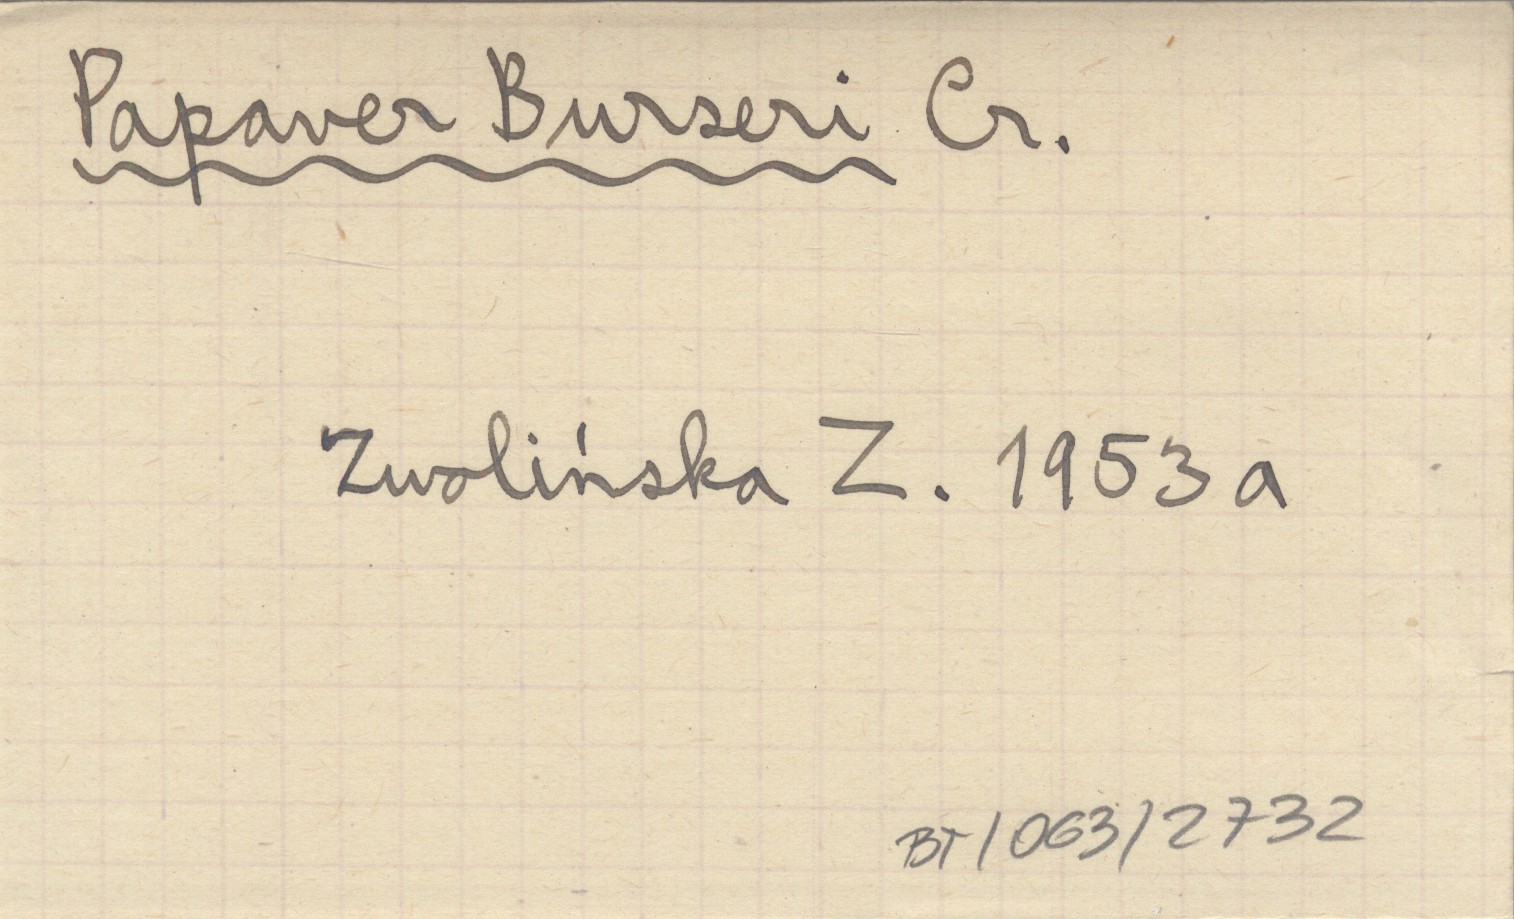 Papaver Burseri Cr.
Zwolińska Z. 1953 a
BT/063/2732